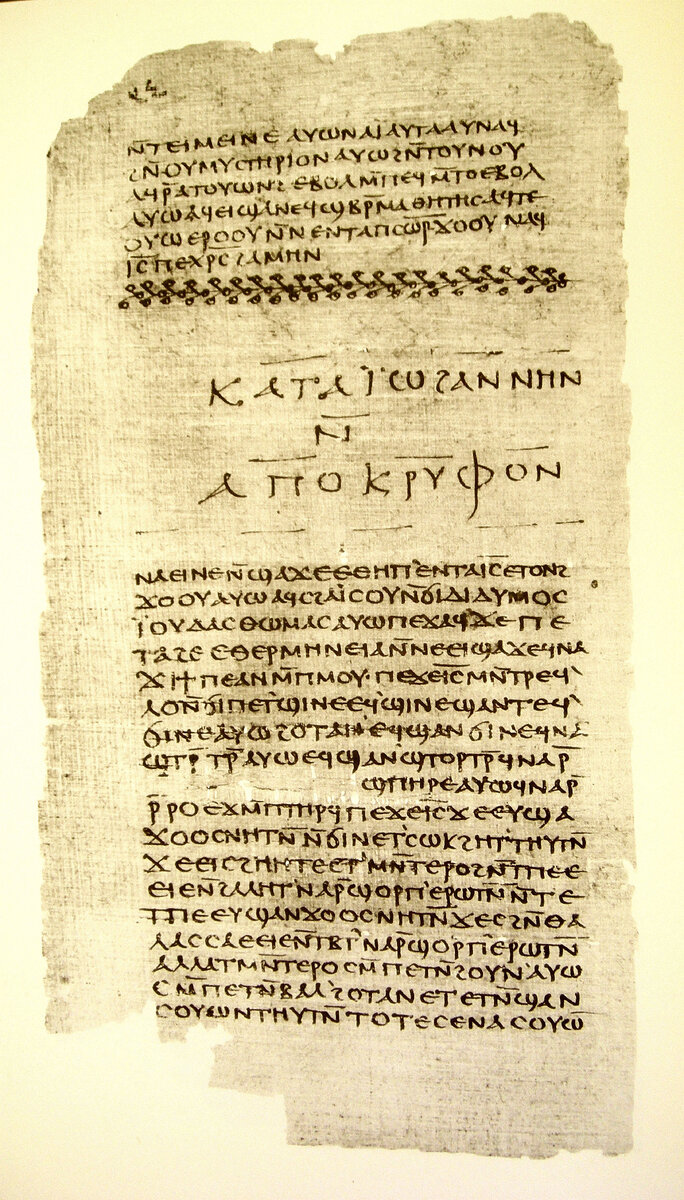 ⲛ̄ⲧⲉⲓⲙⲉⲓⲛⲉ ⲁⲩⲱ ⲛⲁⲓ̈ ⲁⲩⲧⲁⲁⲩ ⲛⲁϥ
ϩⲛ̄ⲟⲩⲙⲩⲥⲧⲏⲣⲓⲟⲛ ⲁⲩⲱ ϩⲛ̄ⲧⲟⲩⲛⲟⲩ
ⲁϥⲣ̄ⲁⲧⲟⲩⲱⲛϩ ⲉⲃⲟⲗ ⲙ̄ⲡⲉϥⲙ̄ⲧⲟ ⲉⲃⲟⲗ
ⲁⲩⲱ ⲁϥⲉⲓ ϣⲁⲛⲉϥϣⲃⲣ̄ⲙⲁⲑⲏⲧⲏⲥ ⲁϥⲧⲉ
ⲟⲩⲱ ⲉⲣⲟⲟⲩ ⲛ̄ⲛⲉⲛⲧⲁⲡⲥⲱ̅ⲣ̅ ϫⲟⲟⲩ ⲛⲁϥ
ⲓ̅ⲥ̅ ⲡⲉⲭ̅ⲣ̅ⲥ̅ ϩⲁⲙⲏⲛ
ⲕⲁⲧⲁ ⲓ̈ⲱϩⲁⲛⲛⲏⲛ
ⲛ̄
ⲁⲡⲟⲕⲣⲩⲫⲟⲛ
ⲛⲁⲉⲓ ⲛⲉ ⲛ̄ϣⲁϫⲉ ⲉⲑⲏⲡ ⲉⲛⲧⲁⲓ̅ⲥ̅ ⲉⲧⲟⲛϩ
ϫⲟⲟⲩ ⲁⲩⲱ ⲁϥⲥϩⲁⲓ̈ⲥⲟⲩ ⲛ̄ϭⲓ ⲇⲓⲇⲩⲙⲟⲥ
ⲓ̈ⲟⲩⲇⲁⲥ ⲑⲱⲙⲁⲥ ⲁⲩⲱ ⲡⲉϫⲁϥ ϫⲉ ⲡⲉ
ⲧⲁϩⲉ ⲉⲑⲉⲣⲙⲏⲛⲉⲓⲁ ⲛ̄ⲛⲉⲉⲓϣⲁϫⲉ ϥⲛⲁ
ϫⲓ ϯⲡⲉ ⲁⲛ ⲙ̄ⲡⲙⲟⲩ· ⲡⲉϫⲉ ⲓ̅ⲥ̅ ⲙⲛ̄ⲧⲣⲉϥ`
ⲗⲟ ⲛ̄ϭⲓ ⲡⲉⲧ`ϣⲓⲛⲉ ⲉϥϣⲓⲛⲉ ϣⲁⲛⲧⲉϥ`
ϭⲓⲛⲉ ⲁⲩⲱ ϩⲟⲧⲁⲛ ⲉϥϣⲁⲛϭⲓⲛⲉ ϥⲛⲁ
ϣⲧⲣ̄ⲧⲣ̄ ⲁⲩⲱ ⲉϥϣⲁⲛϣⲧⲟⲣⲧⲣ̄ ϥⲛⲁⲣ̄
ϣⲡⲏⲣⲉ ⲁⲩⲱ ϥⲛⲁⲣ̄
ⲣ̄ⲣⲟ ⲉϫⲙ̄ⲡⲧⲏⲣϥ ⲡⲉϫⲉ ⲓ̅ⲥ̅ ϫⲉ ⲉⲩϣⲁ
ϫⲟⲟⲥ ⲛⲏⲧⲛ̄ ⲛ̄ϭⲓ ⲛⲉⲧ`ⲥⲱⲕ ϩⲏⲧ` ⲑⲏⲩⲧⲛ̄
ϫⲉ ⲉⲓⲥϩⲏⲏⲧⲉ ⲉⲧ`ⲙⲛ̄ⲧⲉⲣⲟ ϩⲛ̄ⲧⲡⲉ ⲉ
ⲉⲓⲉ ⲛ̄ϩⲁⲗⲏⲧ` ⲛⲁⲣ̄ϣⲟⲣⲡ` ⲉⲣⲱⲧⲛ̄ ⲛ̄ⲧⲉ
ⲧⲡⲉ ⲉⲩϣⲁⲛϫⲟⲟⲥ ⲛⲏⲧⲛ̄ ϫⲉ ⲥϩⲛ̄ⲑⲁ
ⲗⲁⲥⲥⲁ ⲉⲉⲓⲉ ⲛ̄ⲧⲃⲧ` ⲛⲁⲣ̄ϣⲟⲣⲡ` ⲉⲣⲱⲧⲛ̄
ⲁⲗⲗⲁ ⲧⲙⲛ̄ⲧⲉⲣⲟ ⲥⲙ̄ⲡⲉⲧⲛ̄ϩⲟⲩⲛ` ⲁⲩⲱ
ⲥⲙ̄ⲡⲉⲧⲛ̄ⲃⲁⲗ` ϩⲟⲧⲁⲛ ⲉⲧⲉⲧⲛ̄ϣⲁⲛ
ⲥⲟⲩⲱⲛ ⲧⲏⲩⲧⲛ̄ ⲧⲟⲧⲉ ⲥⲉⲛⲁⲥⲟⲩⲱ